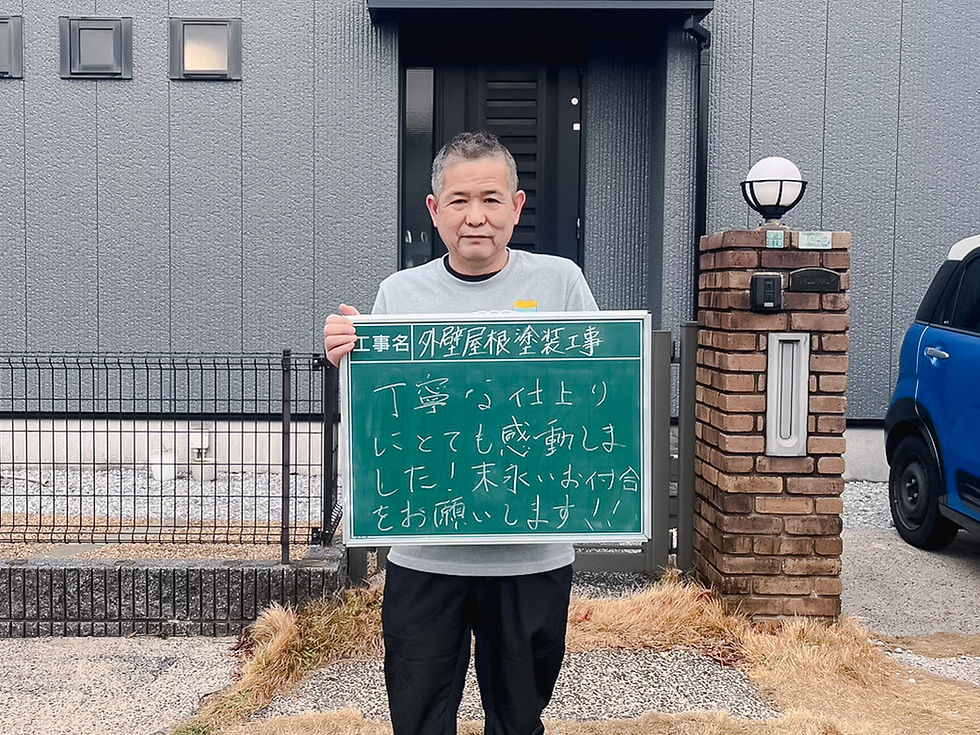 工事名 外壁屋根塗装工事
丁寧な仕上り
にとても感動しま
した！末永いお付合
をお願いします！！